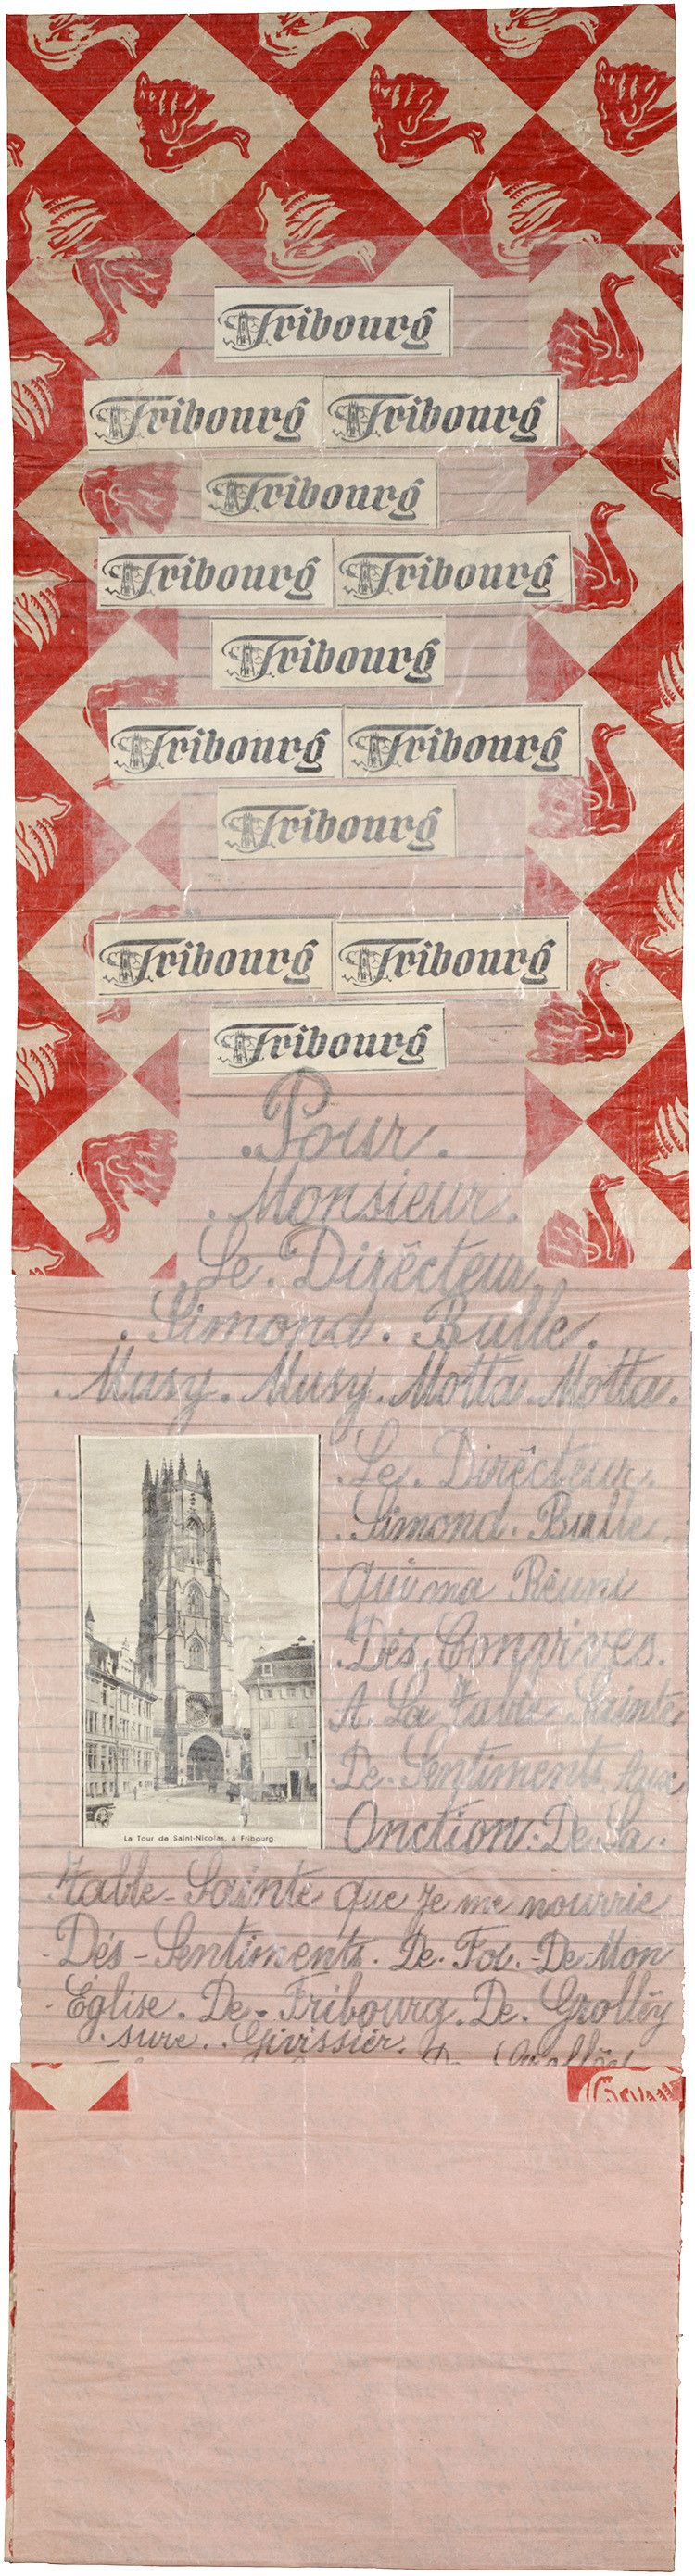 Fribourg
Fribourg Fribourg
Fribourg
Fribourg Fribourg
Fribourg
Fribourg Fribourg
Fribourg
Fribourg Fribourg
Fribourg
. Pour .
. Monsieur .
. Le . Dirêcteur .
. Simond . Bulle .
. Musy . Musy . Motta . Motta .
. Le . Dirêcteur .
. Simond . Bulle .
qui ma Réuni
. Dés . Congrives .
A . La Table - Sainte
De - Sentiments Aux
Onction : De La .
Table - Sainte que Je me nourrie
- Dés - Sentiments . De . Foi . - De - Mon
- Église . De - Fribourg . De . Grollêy
. sure . . Givissiér .
La Tour de Saint-Nicolas, à Fribourg.